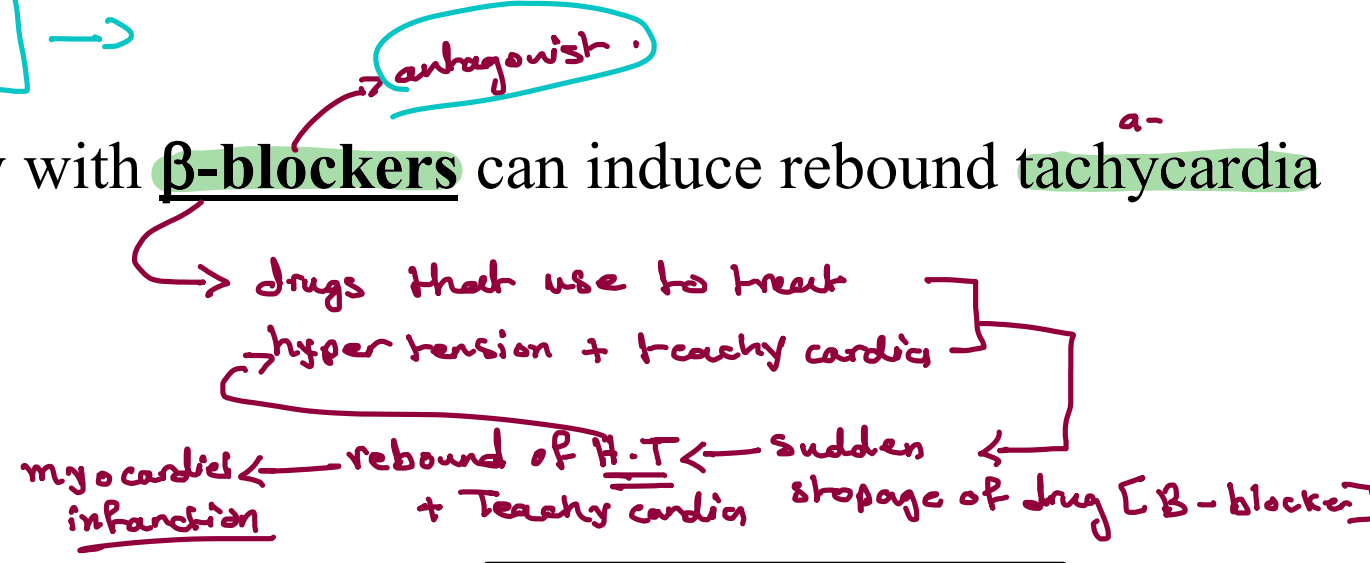 antagonist.
a-
with β-blockers can induce rebound tachycardia
drugs that use to treat
hyper tension + teachy cardia
myocardial ← rebound of H.T ← sudden
infanction + Teachy cardia stopage of drug [B-blocker]